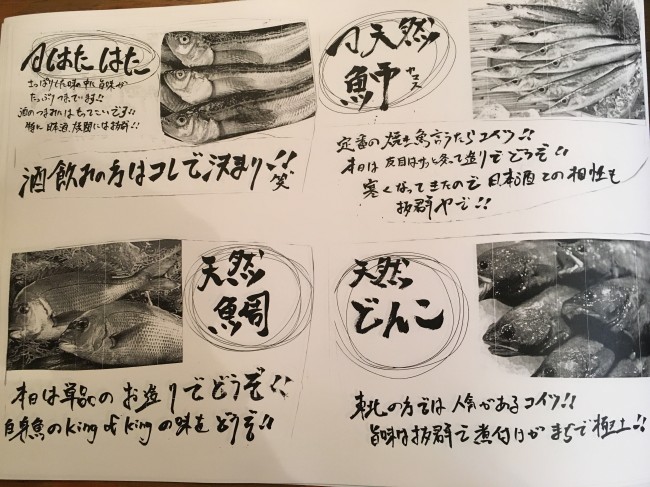 はたはた
さっぱりした味の中に旨味が
たっぷりつまってます!!
酒のつまみにはもってこいです!!
特に日本酒、焼酎には抜群!!
酒飲みの方はコレで決まり!!
笑
天然
魳
カマス
定番の焼き魚言うたらコイツ!!
本日は皮目はサッと炙って造りでどうぞ!!
寒くなってきたので日本酒との相性も
抜群ヤで!!
天然
鯛
本日は単品のお造りでどうぞ!!
白身魚のKing of Kingの味をどうぞ!!
天然
どんこ
東北の方では人気があるコイツ!!
旨味は抜群で煮付けがまぢで極上!!